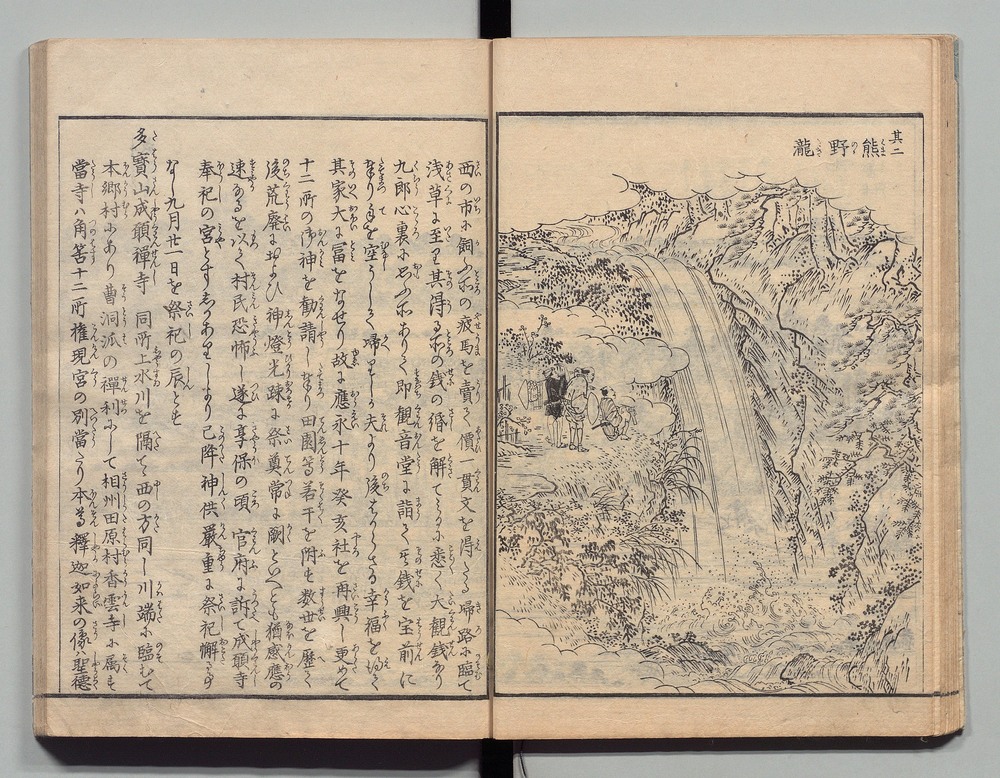 其二
熊野瀧
西の市に飼ふ所の疲馬を賣て價一貫文を得たる帰路に臨て
浅草に至里其得る所の銭の緡を解てみるに悉く大観銭なり
九郎心裏に思ふ所ありて即観音堂に詣て其銭を宝前に
なり手を空うして帰りしか夫より後はからさる幸福を得て
其家大に冨をなせり故に應永十年癸亥社を再興し更めて
十二所の御神を勧請しなほ田園等若干を附も数世を歴て
後荒廃におよひ神燈光疎に祭奠常に闕といへとも猶感應の
速なるを以て村民恐怖し遂に享保の頃 官府に訴て成願寺
奉祀の宮とすしかありしより已降神供嚴重に祭祀懈る事
なし九月廿一日を祭祀の辰とも
多寳山成願禪寺 同所上水川を隔て西の方同し川端に臨むて
本郷村にあり曹洞派の禪刹にして相州田原村香雲寺に属も
當寺ハ角筈十二所権現宮の別當たり本尊釋迦如来の像ハ聖徳